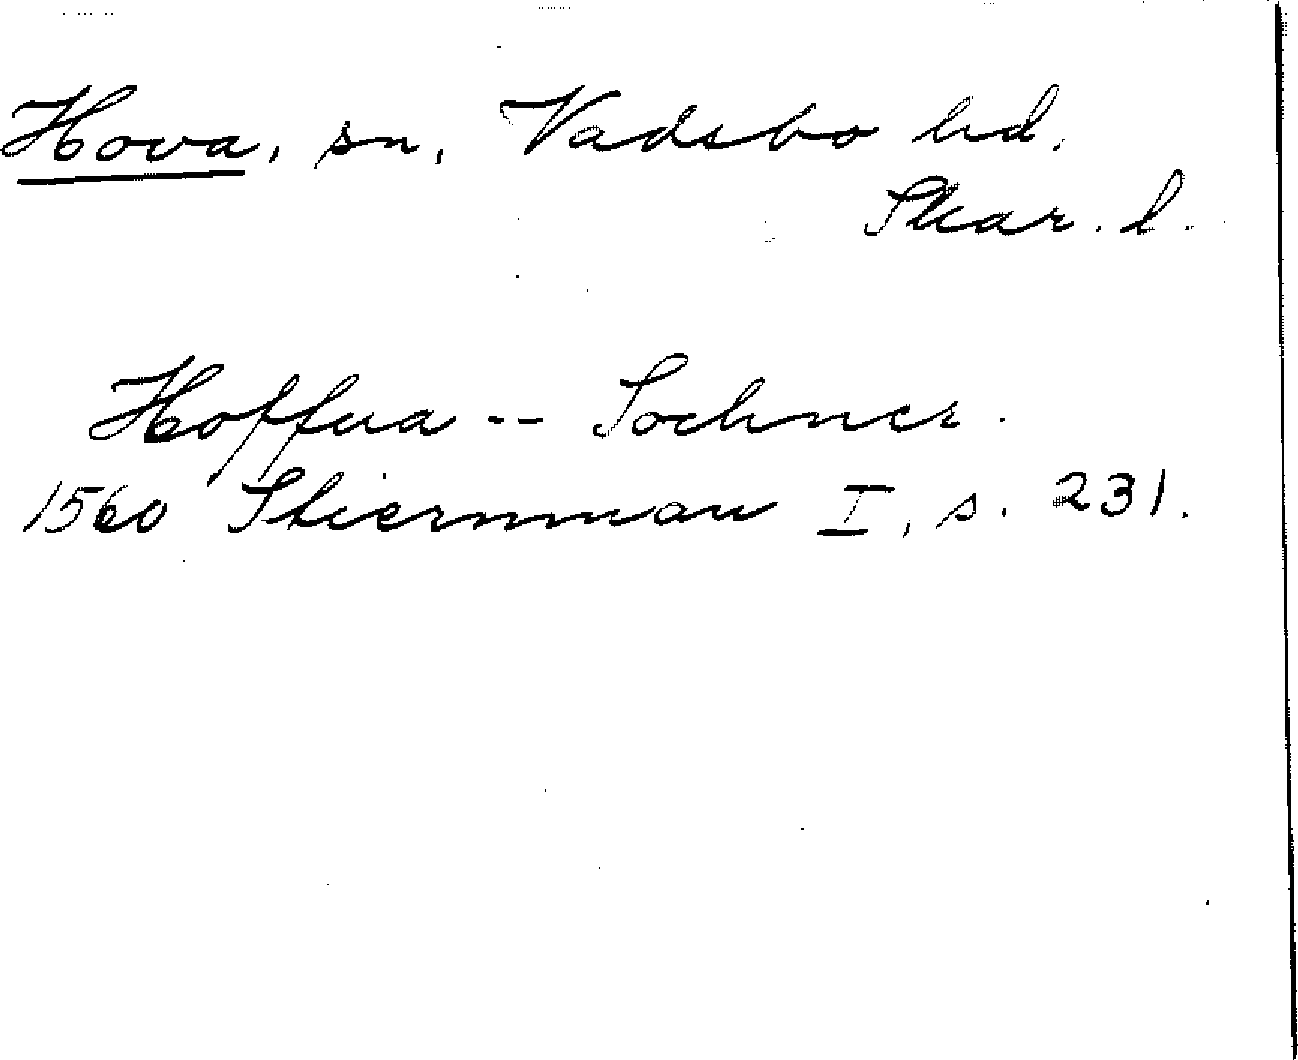 Hova, sn, Vadsbo hd.
Skar. l.
Hoffua -- Sochner.
1560 Stiernman I, s. 231.